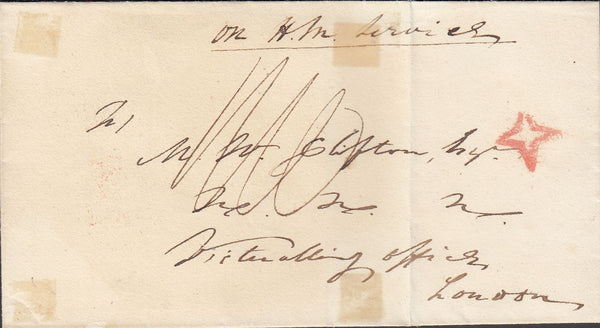 On H.M. Service
To
M. W. Clifton, Esqr.
&c. &c. &c.
Victualling Office
London